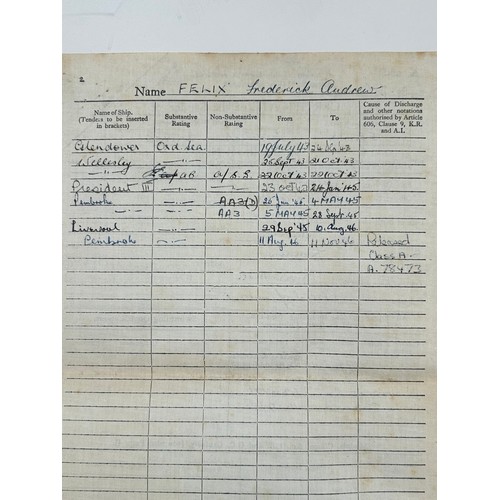 2
Name FELIX Frederick Andrew
Name of Ship. (Tenders to be inserted in brackets) Substantive Rating Non-Substantive Rating From To Cause of Discharge and other notations authorised by Article 606, Clause 9, K.R. and A.I.
Glendower Ord Sea. 19 July 43
Wellesley —"— 21 Oct 43
—"— a/S.G 22 Oct 43 22 Oct 43
President III —"— 23 Oct 43 24 Jan 45
Pembroke —"— AA3 25 Jan 45 4 MAY 45
—"— —"— AA3 5 MAY 45 28 Sept. 45
Liverpool —"— 29 Sep '45 10. Aug. 46.
Pembroke —"— 11 Aug. 46 11 Nov 46 Released
Class A.
A. 78473